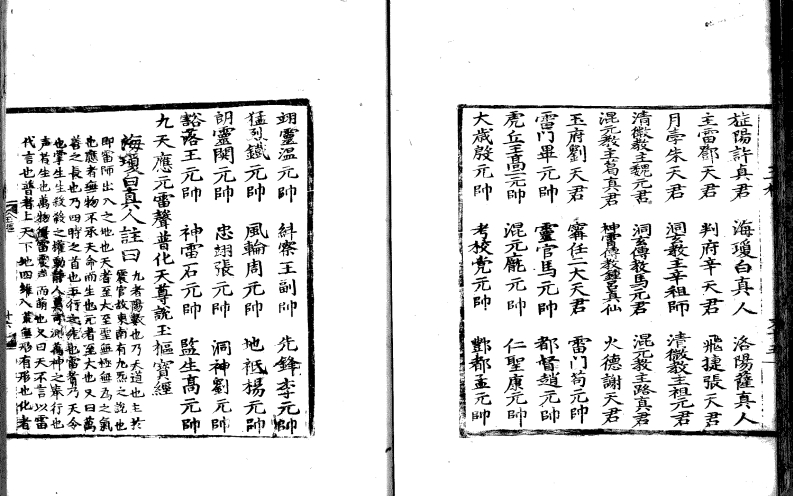 旌陽許真君　海瓊白真人　洛陽薩真人
主雷鄧天君　判府辛天君　飛捷張天君
月孛朱天君　洞玄教主辛祖師　清微教主祖元君
清微教主魏元君　洞玄傳教馬元君　混元教主路真君
混元教主葛真君　神霄傳教鍾呂真仙　火德謝天君
玉府劉天君　寗任二大天君　雷門苟元帥
雷門畢元帥　靈官馬元帥　都督趙元帥
虎丘王高二元帥　混元龐元帥　仁聖康元帥
太歲殷元帥　考校党元帥　酆都孟元帥
翊靈溫元帥　糾察王副帥　先鋒李元帥
猛烈鐵元帥　風輪周元帥　地祗楊元帥
朗靈關元帥　忠翊張元帥　洞神劉元帥
豁落王元帥　神雷石元帥　監生高元帥
九天應元雷聲普化天尊說玉樞寶經
海瓊白真人註曰　九者陽數也乃天道也主於
震宮故東南有九炁之說也
即雷師出入之地也天者至大至聖無極無為之氣
也應者無物不承天命而生也元者至大也又曰萬
善之長也乃四時之首也五行之先也雷者乃天令
也掌生生殺殺之權動靜人莫可測萬神之奉行也
声者生也萬物得雷震声而萌也又曰天不言以雷
代言也普者上天下地四維八荒無形有形也化者